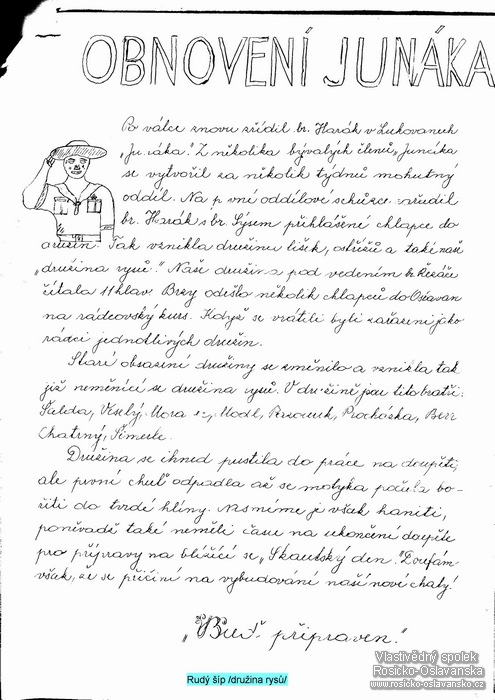 OBNOVENÍ JUNÁKA
Po válce znovu zřídil br. Harák v Zukovanech
„Junáka." Z několika bývalých členů „Junáka
se vytvořil za několik týdnů mohutný
oddíl. Na první oddílové schůzce zařadil
br. Harák s br. Sýsem přihlášené chlapce do
družin. Tak vznikla družina lišek, ostřížů a také naše
„družina rysů." Naše družina pod vedením br.
čítala 11 hlav. Brzy odešlo několik chlapců do Oslavan
na rádcovský kurs. Když se vrátili byli zařazeni jako
rádci jednotlivých družin.
Staré obsazení družiny se změnilo a vznikla tak
již neměnící se družina rysů. V družině jsou tito bratři:
Šalda, Veselý, Mora Modl, Procházka,
Chatrný, Šimerle.
Družina se ihned pustila do práce na doupěti,
ale první chuť odpadla až se motyka počala bo-
řiti do tvrdé hlíny. Nesmíme je však haniti,
poněvadž také neměli času na ukončení doupěte
pro přípravy na blížící se „Skautský den." Doufám
však, že se přičiní na vybudování naší nové chaty!
„Buď připraven."
Rudý šíp /družina rysů/
Vlastivědný spolek
Rosicko-Oslavanska
www.rosicko-oslavansko.cz